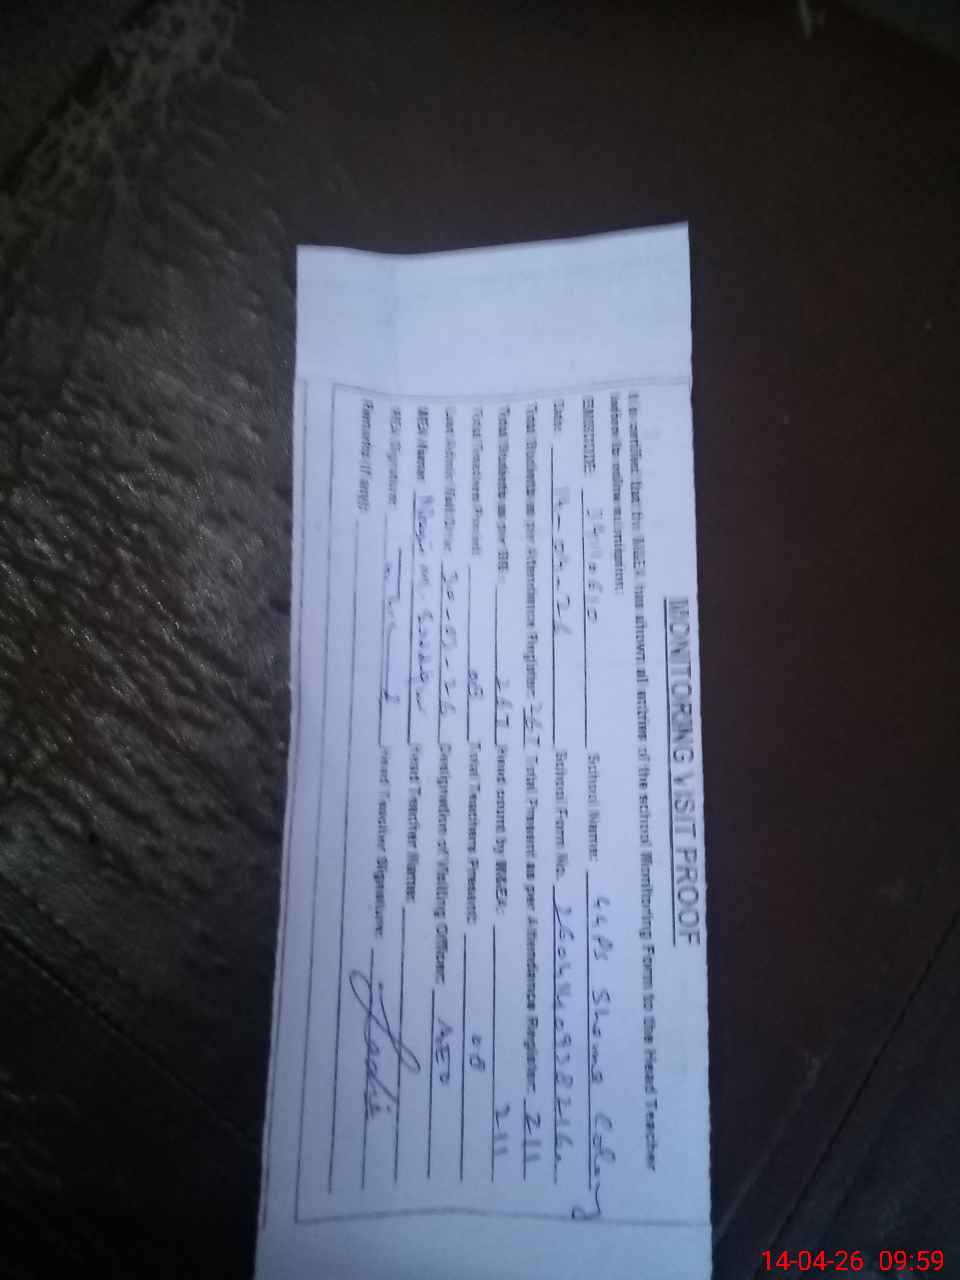 MONITORING VISIT PROOF
It is certified that the M&EA has shown all entries of the school Monitoring Form to the Head Teacher
before the online submission:
EMISCODE: School Name: GGPS Shama Colony
Date: 14-04-26 School Form No. 2604140938216
Total Students as per Attendance Register: 267 Total Present as per Attendance Register: 211
Total Students as per SIS: 267 Head count by M&EA: 211
Total Teachers Posted: 08 Total Teachers Present: 08
Last Admin Visit Date: 30-03-26 Designation of Visiting Officer: AEO
MEA Name: Head Teacher Name:
MEA Signature: Head Teacher Signature:
Remarks (If any):
14-04-26 09:59